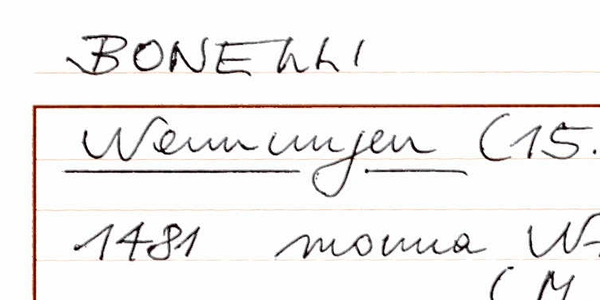 BONELLI
Nennungen (15.
1481 monna
(M